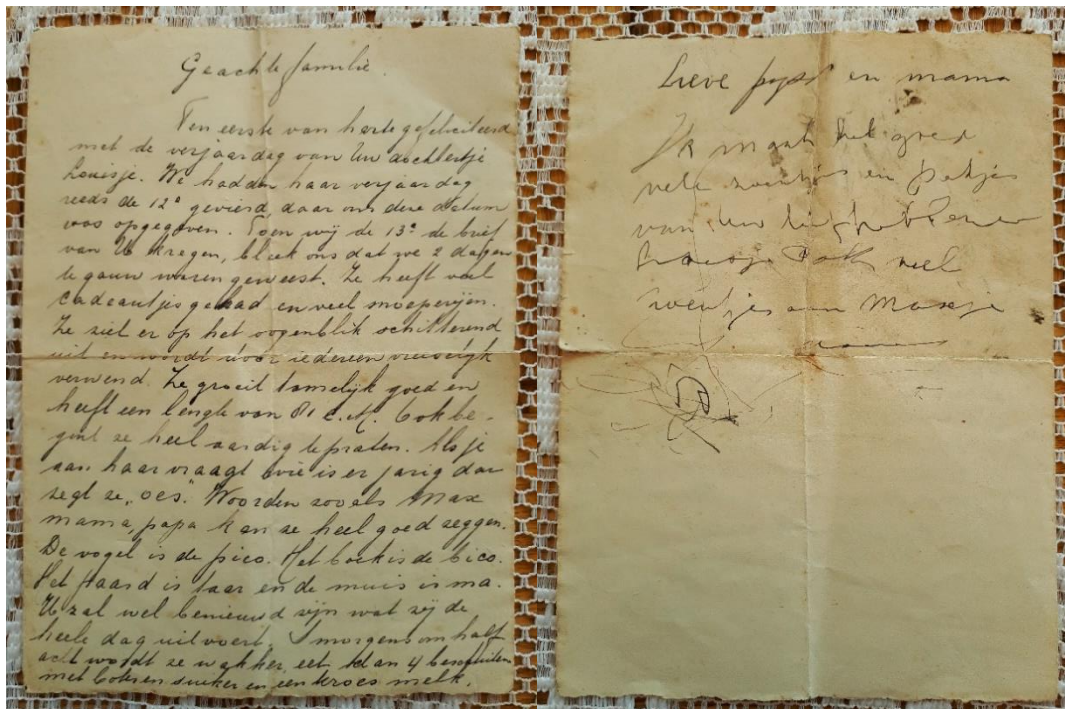 Geachte familie.
Ten eerste van harte gefeliciteerd
met de verjaardag van Uw dochtertje
Louisje. We hadden haar verjaardag
reeds de 12e gevierd, daar ons deze datum
was opgegeven. Toen wij de 13e de brief
van U kregen, bleek ons dat we 2 dagen
te gauw waren geweest. Ze heeft veel
cadeautjes gehad en veel snoeperijen.
Ze ziet er op het oogenblik schitterend
uit en wordt door iedereen vreeselijk
verwend. Ze groeit tamelijk goed en
heeft een lengte van 81 c.M. Ook be-
gint ze heel aardig te praten. Als je
aan haar vraagt wie is er jarig dan
zegt ze „oes." Woorden zooals Max
mama, papa kan ze heel goed zeggen.
De vogel is de pico. Het boek is de bico.
Het paard is taar en de muis is ma.
U zal wel benieuwd zijn wat zij de
heele dag uitvoert. Smorgens om half
acht wordt ze wakker eet dan 4 beschuiten
met boter en suiker en een kroes melk.
Lieve en mama
Ik maak het goed
vele zoentjes en pakjes
van Uw
veel
zoentjes aan Maxje